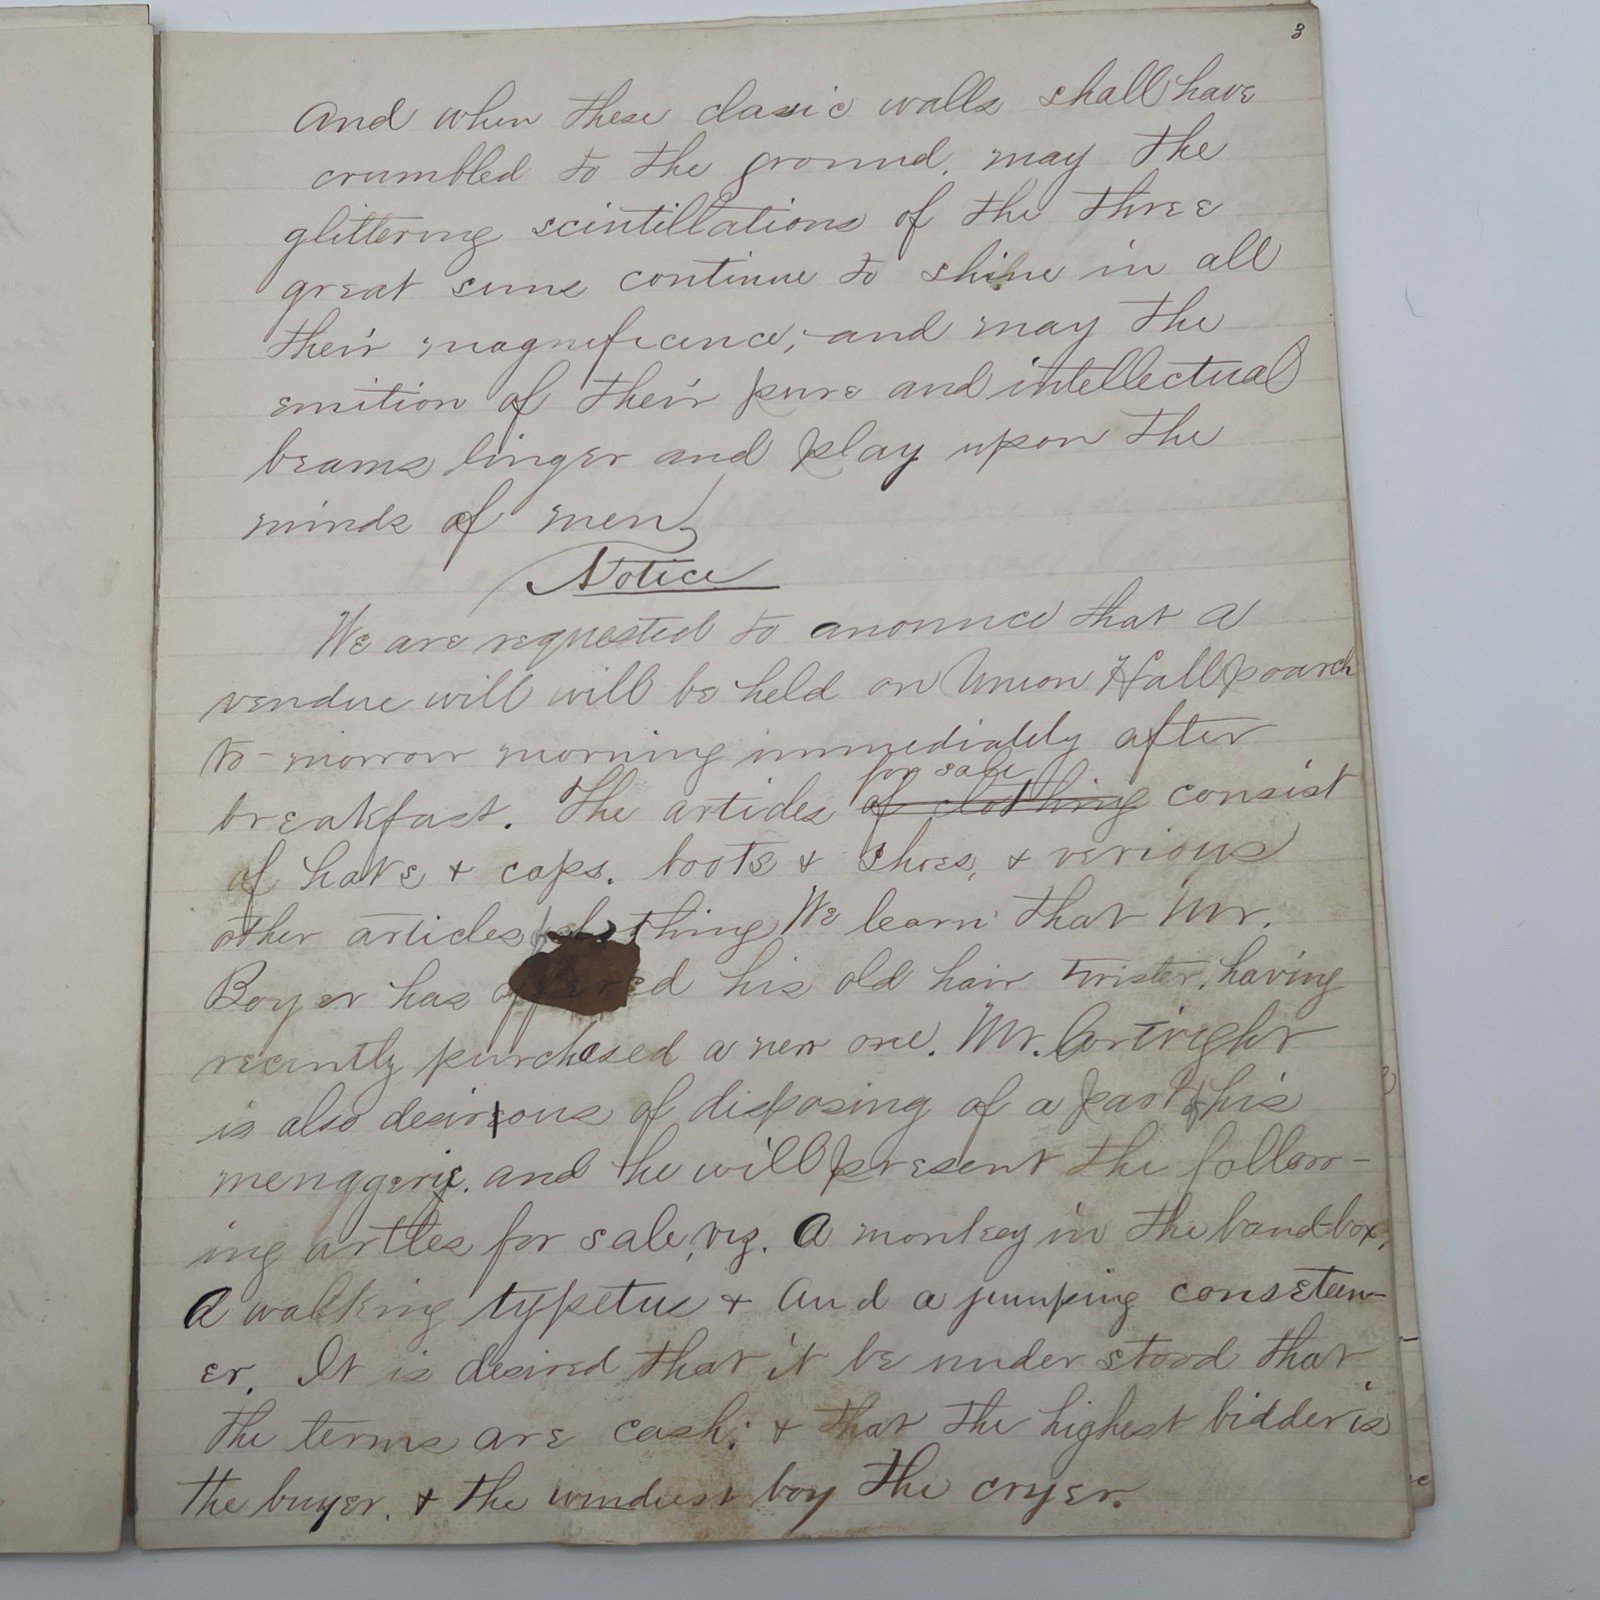 3
And when these classic walls shall have
crumbled to the ground, may the
glittering scintillations of the three
great suns continue to shine in all
their magnificence; and may the
emition of their pure and intellectual
beams linger and play upon the
minds of men,
Notice
We are requested to anonnce that a
vendue will will be held on Union Hall poarch
to-morrow morning immediatly after
for sale
breakfast. The articles of clothing consist
of hats & caps. boots & shoes, & verious
other articles of clothing We learn that Mr.
Boyer has offered his old hair twister, having
recently purchased a new one. Mr. Cortright
is also desirious of disposing of a part of his
menaggerie. and he will present the follow-
ing artles for sale, viz. A monkey in the bandbox,
A walking typetus & And a jumping conseteen-
er. It is desired that it be under stood that
the terms are cash; & that the highest bidder is
the buyer. & the windiest boy the cryer.